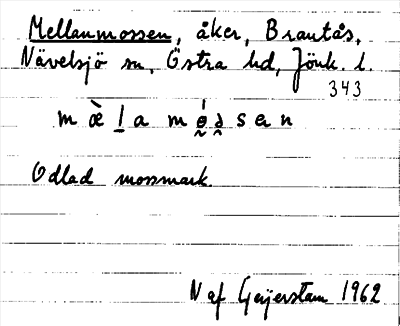 Mellanmossen, åker, Brantås,
Nävelsjö sn, Östra hd, Jönk. l.
343
Odlad mossmark.
N af Geijerstam 1962